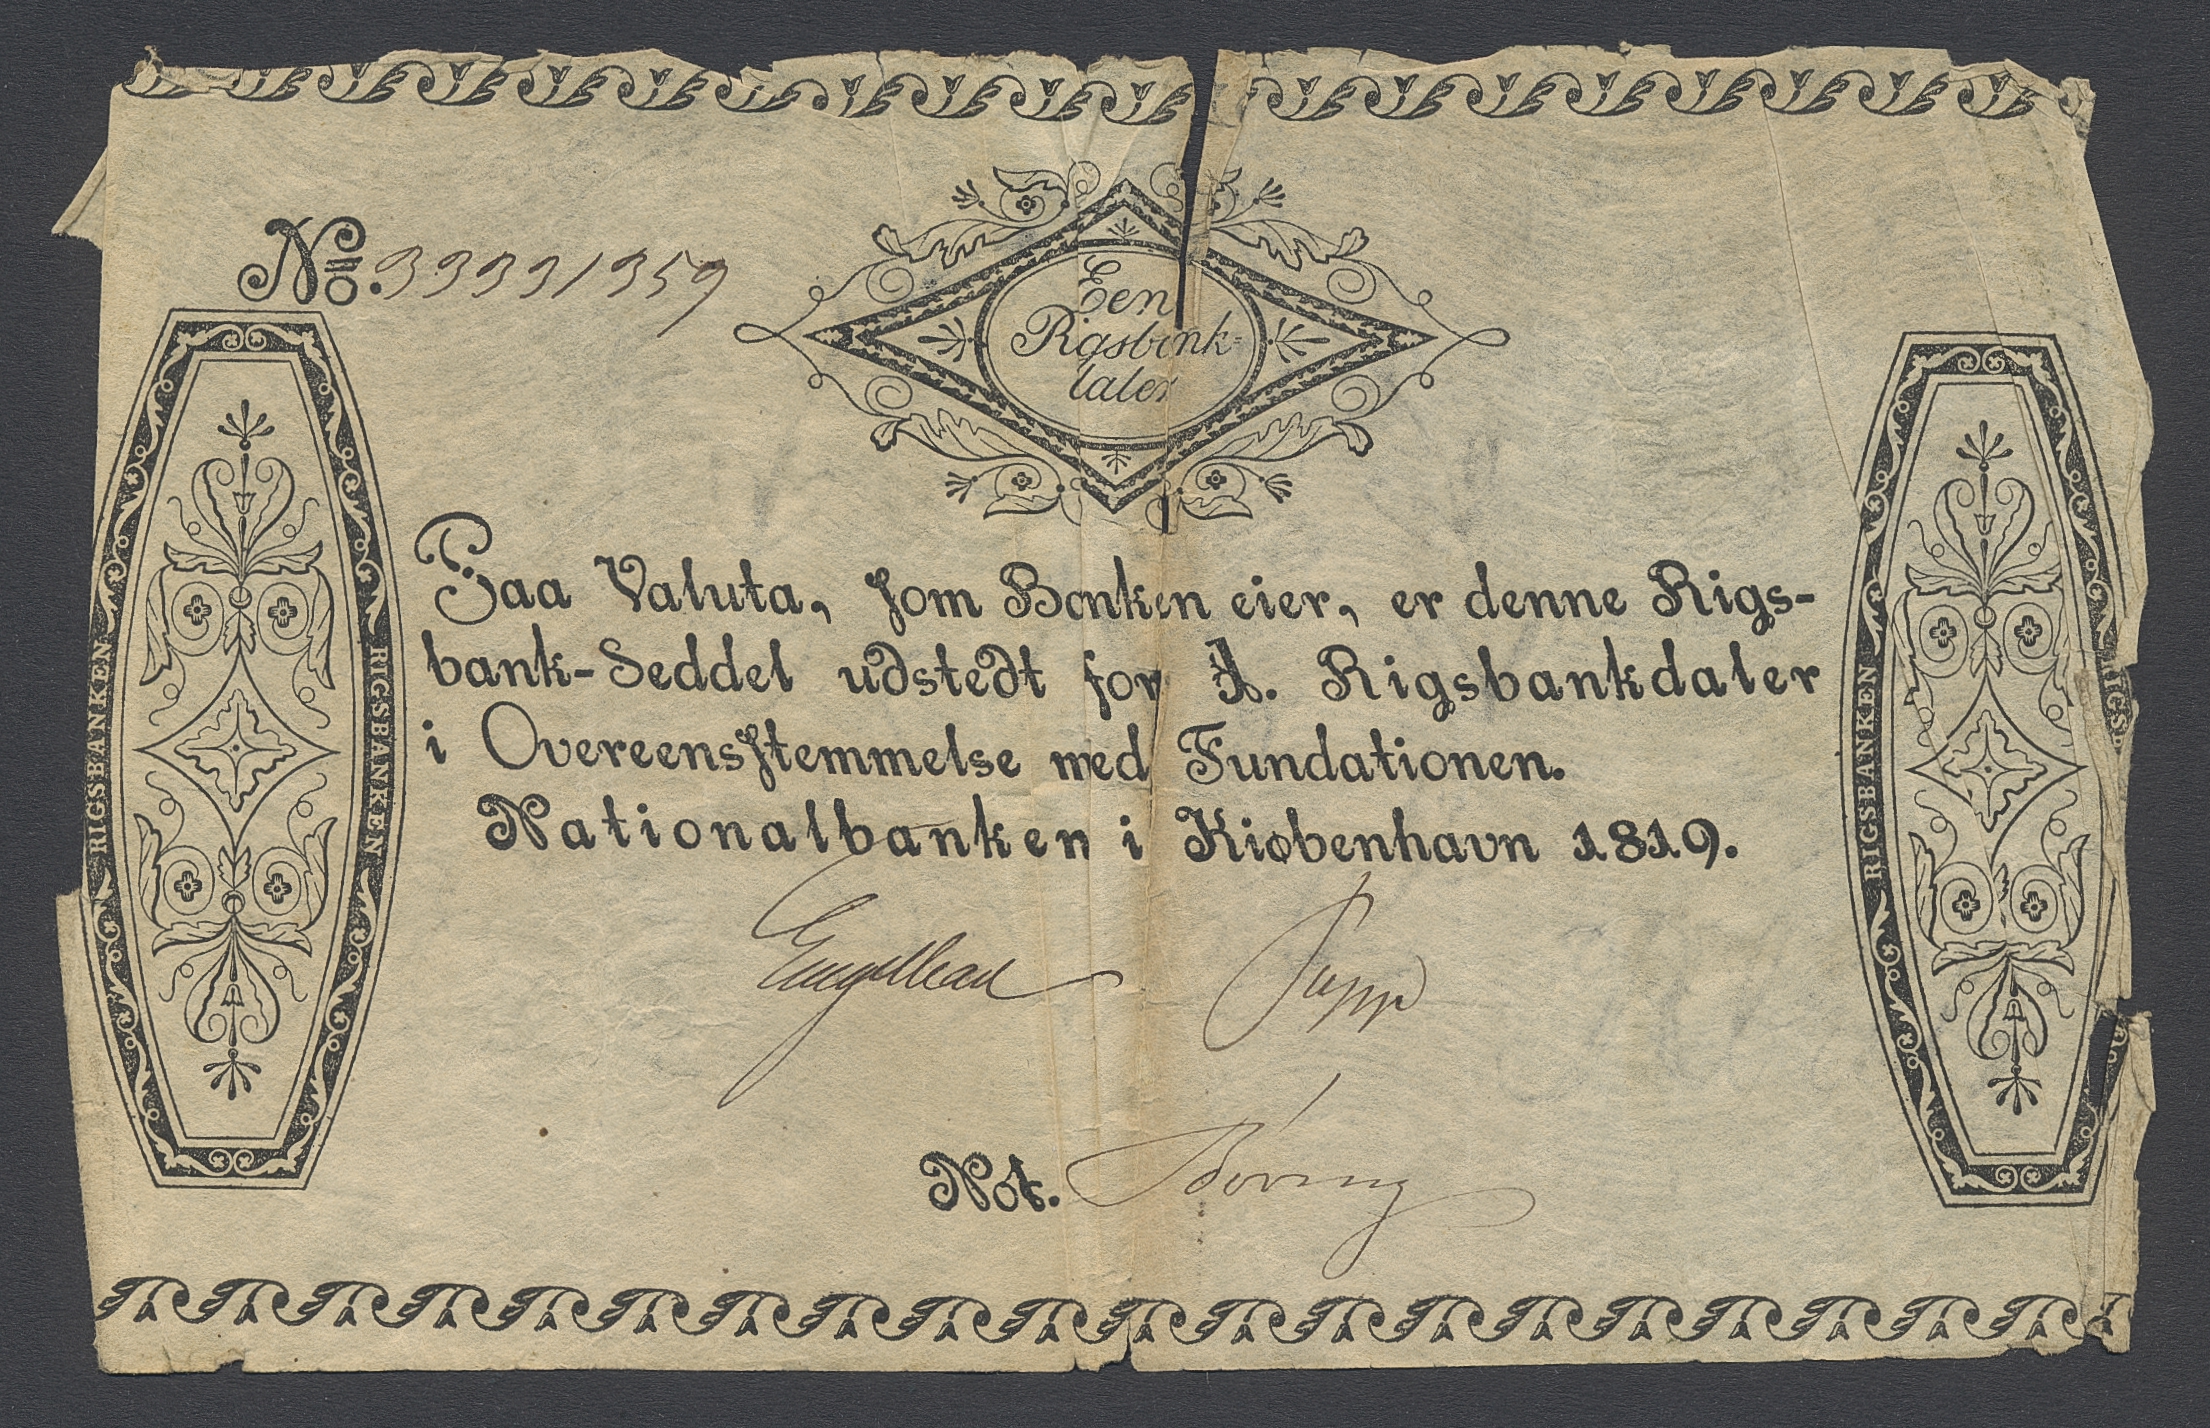 No. 33331359
Een
Rigsbank-
daler
Paa Valuta, som Banken eier, er denne Rigs-
bank-Seddel udstedt for 1. Rigsbankdaler
i Overeensstemmelse med Fundationen.
Nationalbanken i Kiøbenhavn 1819.
Not.
RIGSBANKEN
RIGSBANKEN
RIGSBANKEN
RIGSB